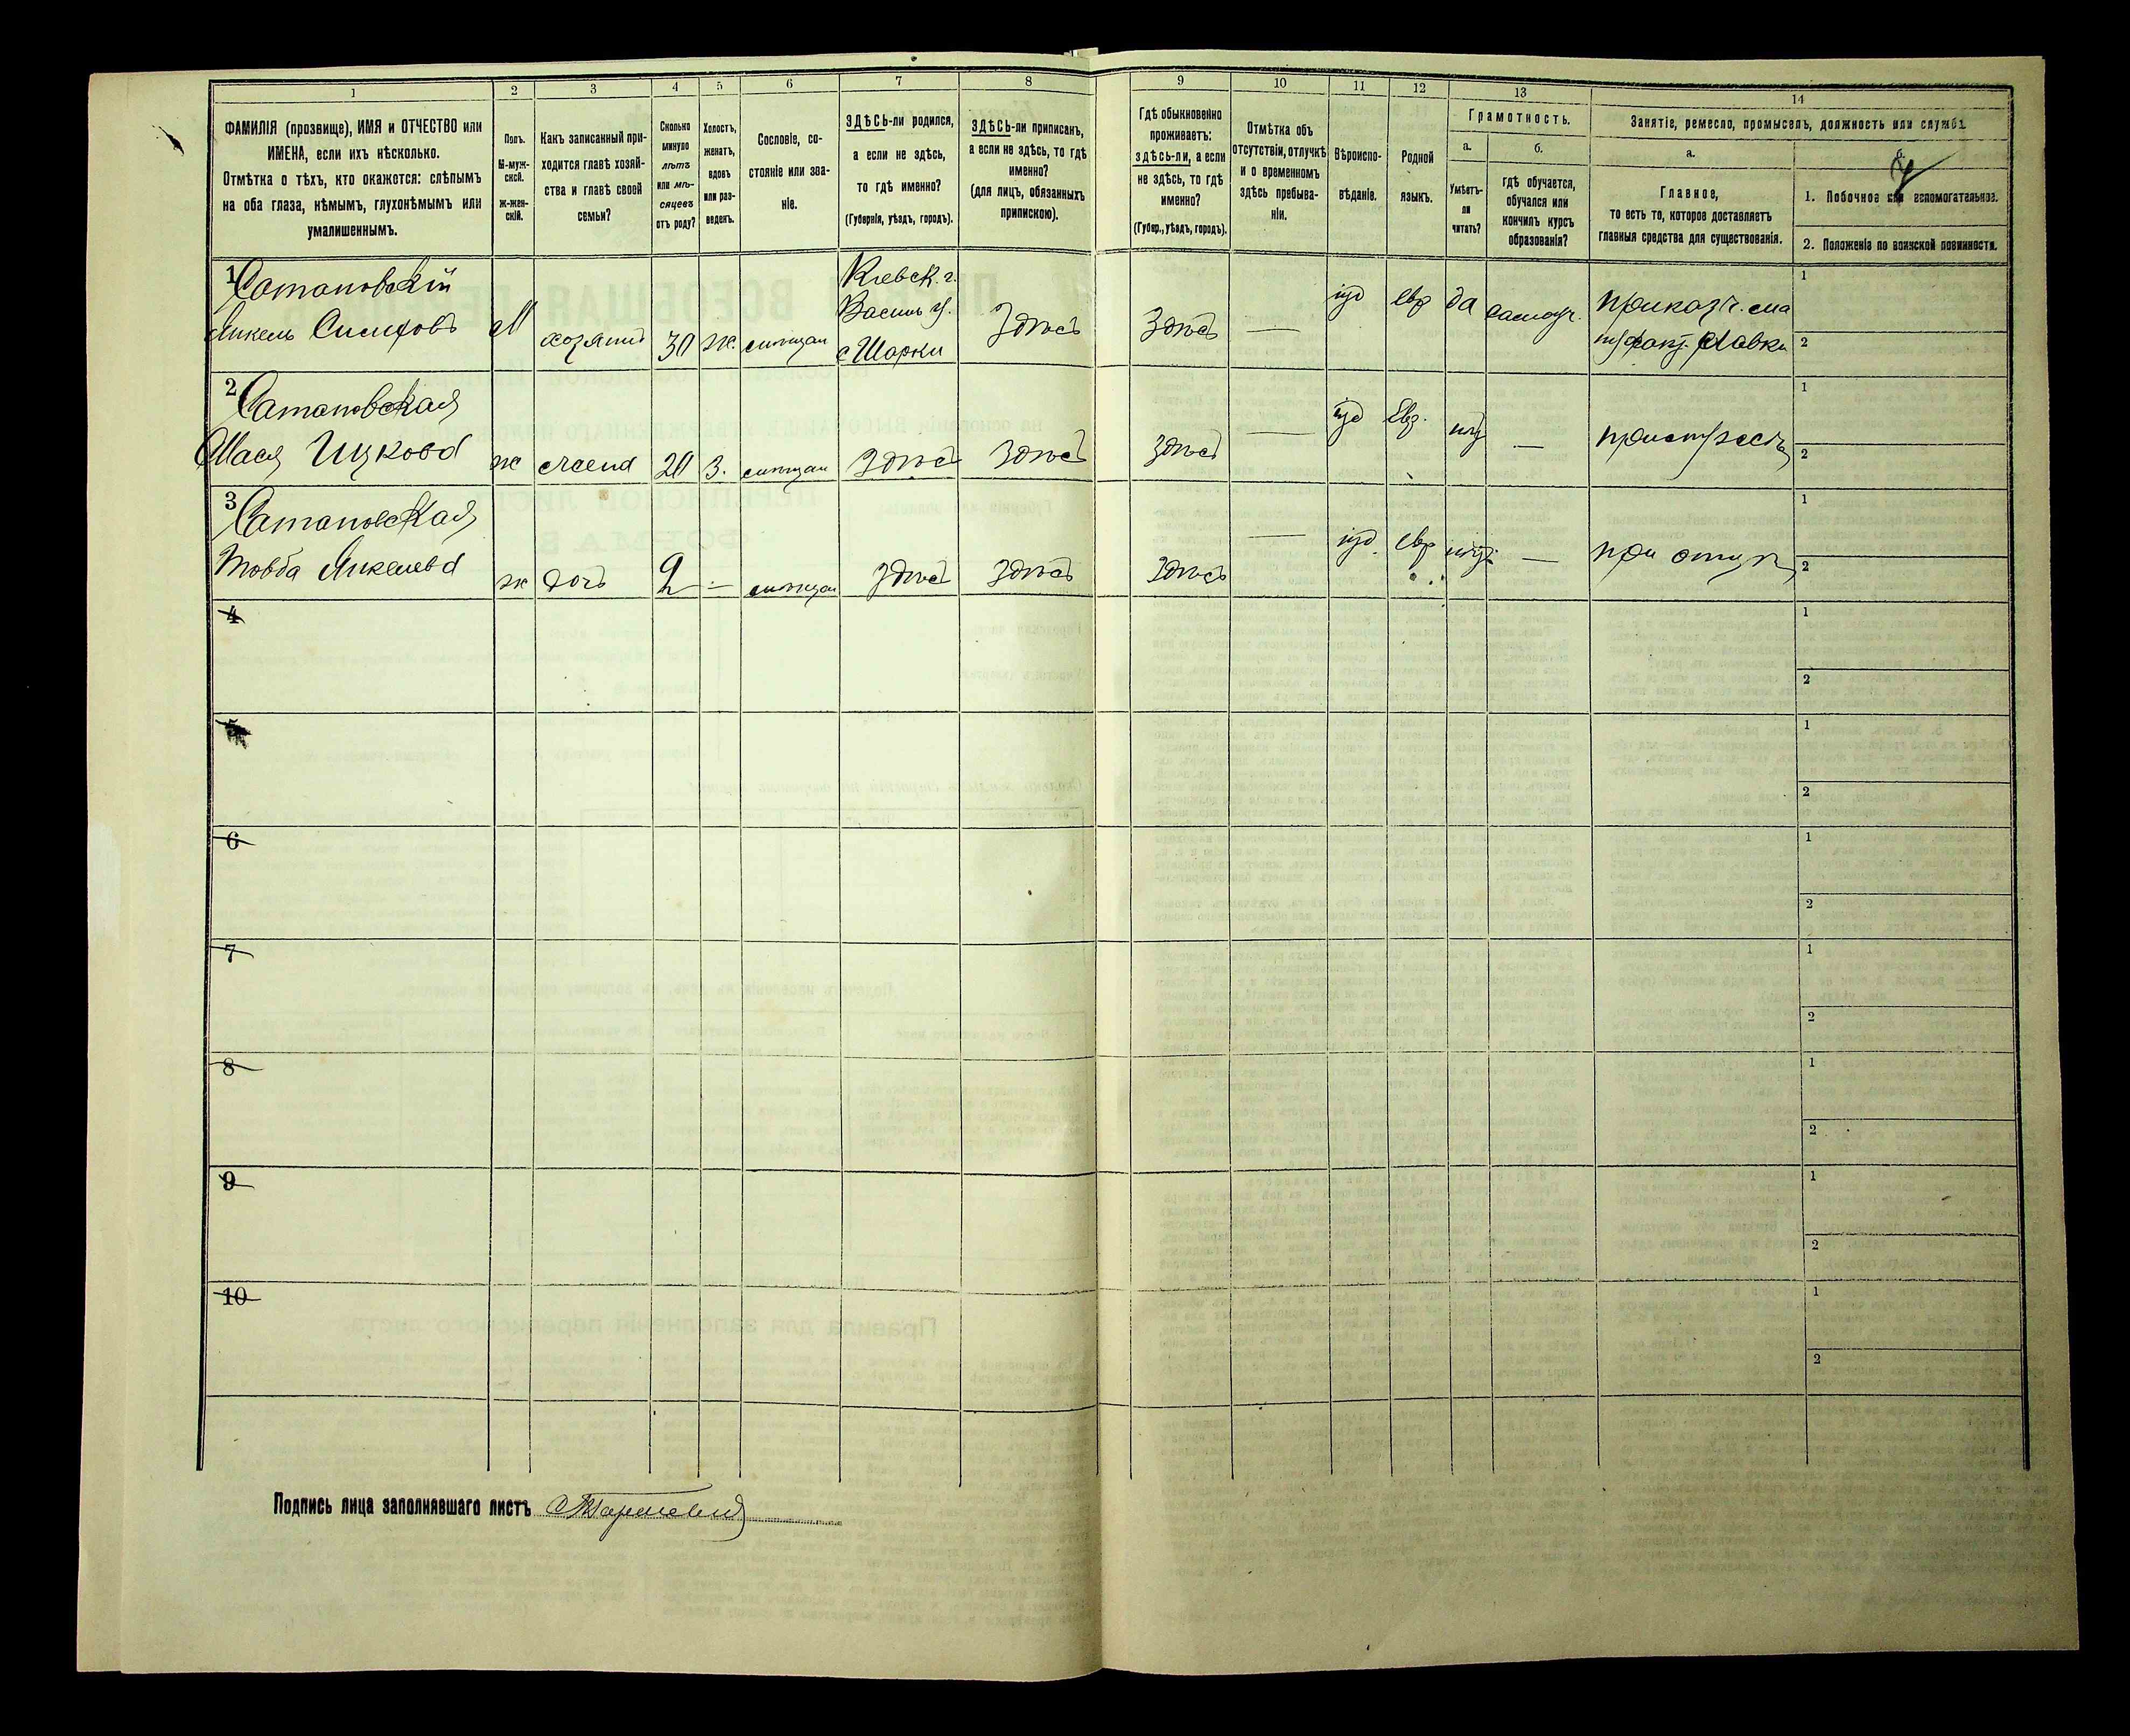 1 2 3 4 5 6 7 8 9 10 11 12 13 14
ФАМИЛІЯ (прозвище), ИМЯ и ОТЧЕСТВО или
ИМЕНА, если ихъ нѣсколько.
Отмѣтка о тѣхъ, кто окажется: слѣпымъ
на оба глаза, нѣмымъ, глухонѣмымъ или
умалишеннымъ.
Полъ.
М-муж-
ской.
Ж-жен-
скій.
Какъ записанный при-
ходится главѣ хозяй-
ства и главѣ своей
семьи?
Сколько
минуло
лѣтъ
или мѣ-
сяцевъ
отъ роду?
Холостъ,
женатъ,
вдовъ
или раз-
веденъ.
Сословіе, со-
стояніе или зва-
ніе.
ЗДѢСЬ-ли родился,
а если не здѣсь,
то гдѣ именно?
(Губернія, уѣздъ, городъ).
ЗДѢСЬ-ли приписанъ,
а если не здѣсь, то гдѣ
именно?
(для лицъ, обязанныхъ
припискою).
Гдѣ обыкновенно
проживаетъ:
здѣсь-ли, а если
не здѣсь, то гдѣ
именно?
(Губер., уѣздъ, городъ).
Отмѣтка объ
отсутствіи, отлучкѣ
и о временномъ
здѣсь пребыва-
ніи.
Вѣроиспо-
вѣданіе.
Родной
языкъ.
Грамотность.
а.
Умѣетъ-
ли
читать?
б.
гдѣ обучается,
обучался или
кончилъ курсъ
образованія?
Занятіе, ремесло, промыселъ, должность или служба.
а.
Главное,
то есть то, которое доставляетъ
главныя средства для существованія.
б.
1. Побочное или вспомогательное.
2. Положеніе по воинской повинности.
1 Сатановскій
Янкель
М хозяинъ 30 ж. мѣщан
Кіевск. г.
Васильк. у.
с Шарки
Здѣсь Здѣсь — іуд евр да самоуч.
приказч.
лавки
1
2
2 Сатановская
Мася Ицкова ж жена 20 З. мѣщан здѣсь Здѣсь Здѣсь — іуд Евр. нѣт — при мужѣ
1
2
3 Сатановская
Товба Янкелева ж дочь 2 — мѣщан здѣсь здѣсь Здѣсь — іуд. евр нѣт — при отцѣ
1
2
4
1
2
5
1
2
6
1
2
7
1
2
8
1
2
9
1
2
10
1
2
Подпись лица заполнявшаго листъ